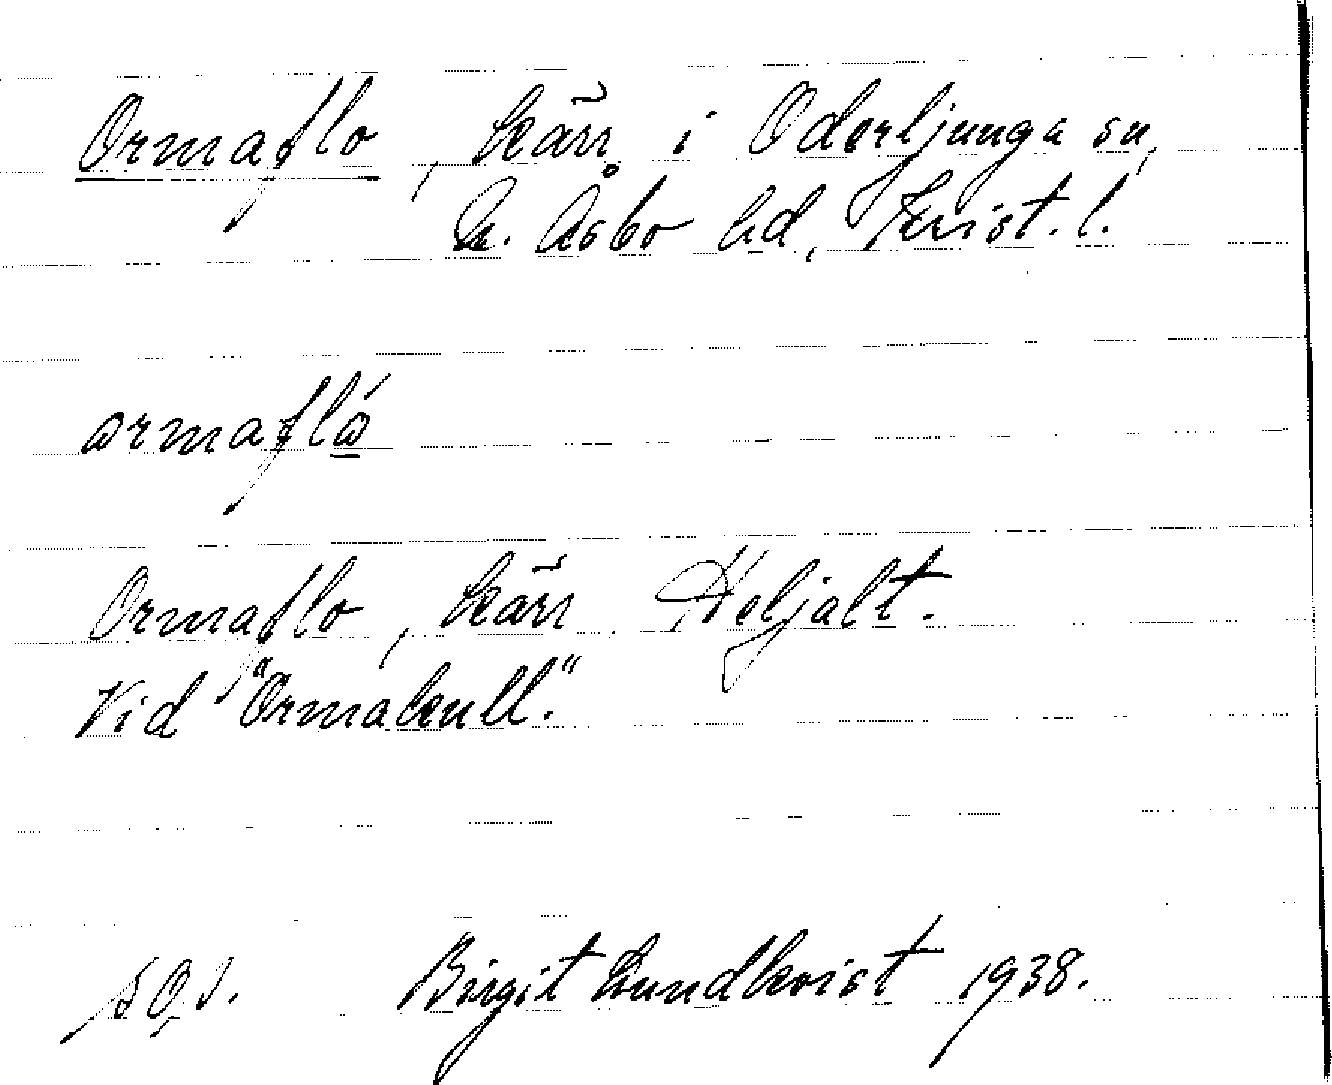 Ormaflo, kärr i Oderljunga sn,
N. Åsbo hd, Krist. l.
ormafló
Ormaflo, kärr Heljalt.
Vid "Ormakull".
Birgit Lundkvist 1938.